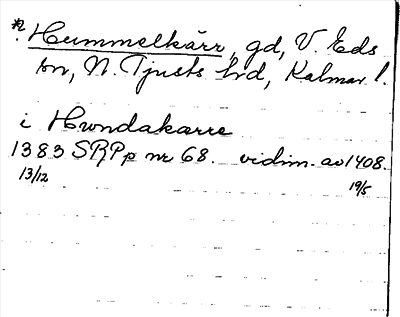 Hummelkärr, gd, V. Eds
sn, N. Tjusts hd, Kalmar l.
i Hwndakærre
1383 SRPp nr 68. vidim. av 1408.
13/12 19/5